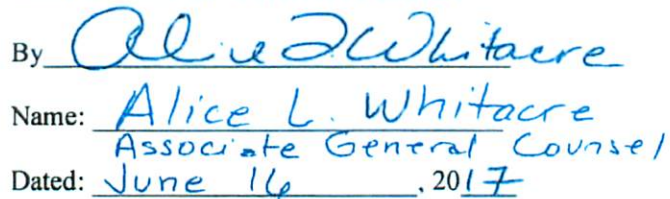 By Alice L Whitacre
Name: Alice L. Whitacre
Associate General Counsel
Dated: June 16, 2017